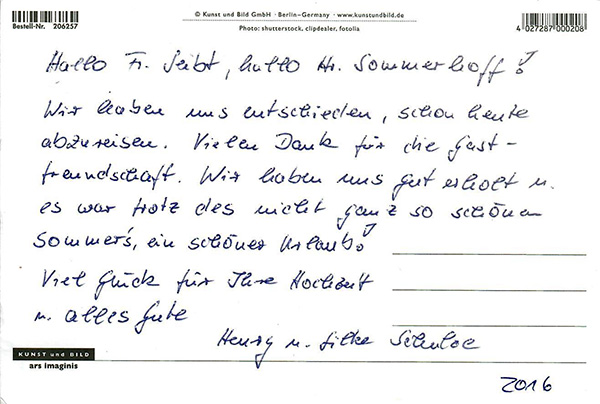 © Kunst und Bild GmbH · Berlin–Germany · www.kunstundbild.de
Bestell-Nr. 206257
4 027287 000208
Photo: shutterstock, clipdealer, fotolia
Hallo Fr. Seibt, hallo Hr. Sommerhoff!
Wir haben uns entschieden, schon heute
abzureisen. Vielen Dank für die Gast-
freundschaft. Wir haben uns gut erholt u.
es war trotz des nicht ganz so schönen
Sommers, ein schöner Urlaub!
Viel Glück für Ihre Hochzeit
u. alles Gute
Henry u. Silke Schulze
KUNST und BILD
ars imaginis
2016